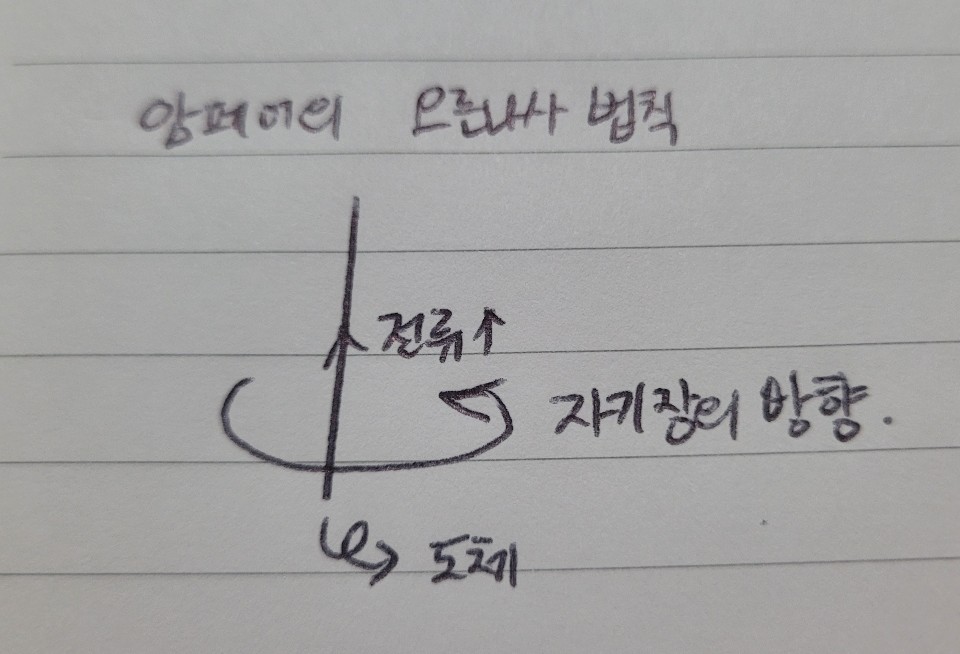 암페어의 오른나사 법칙
전류↑
자기장의 방향.
도체